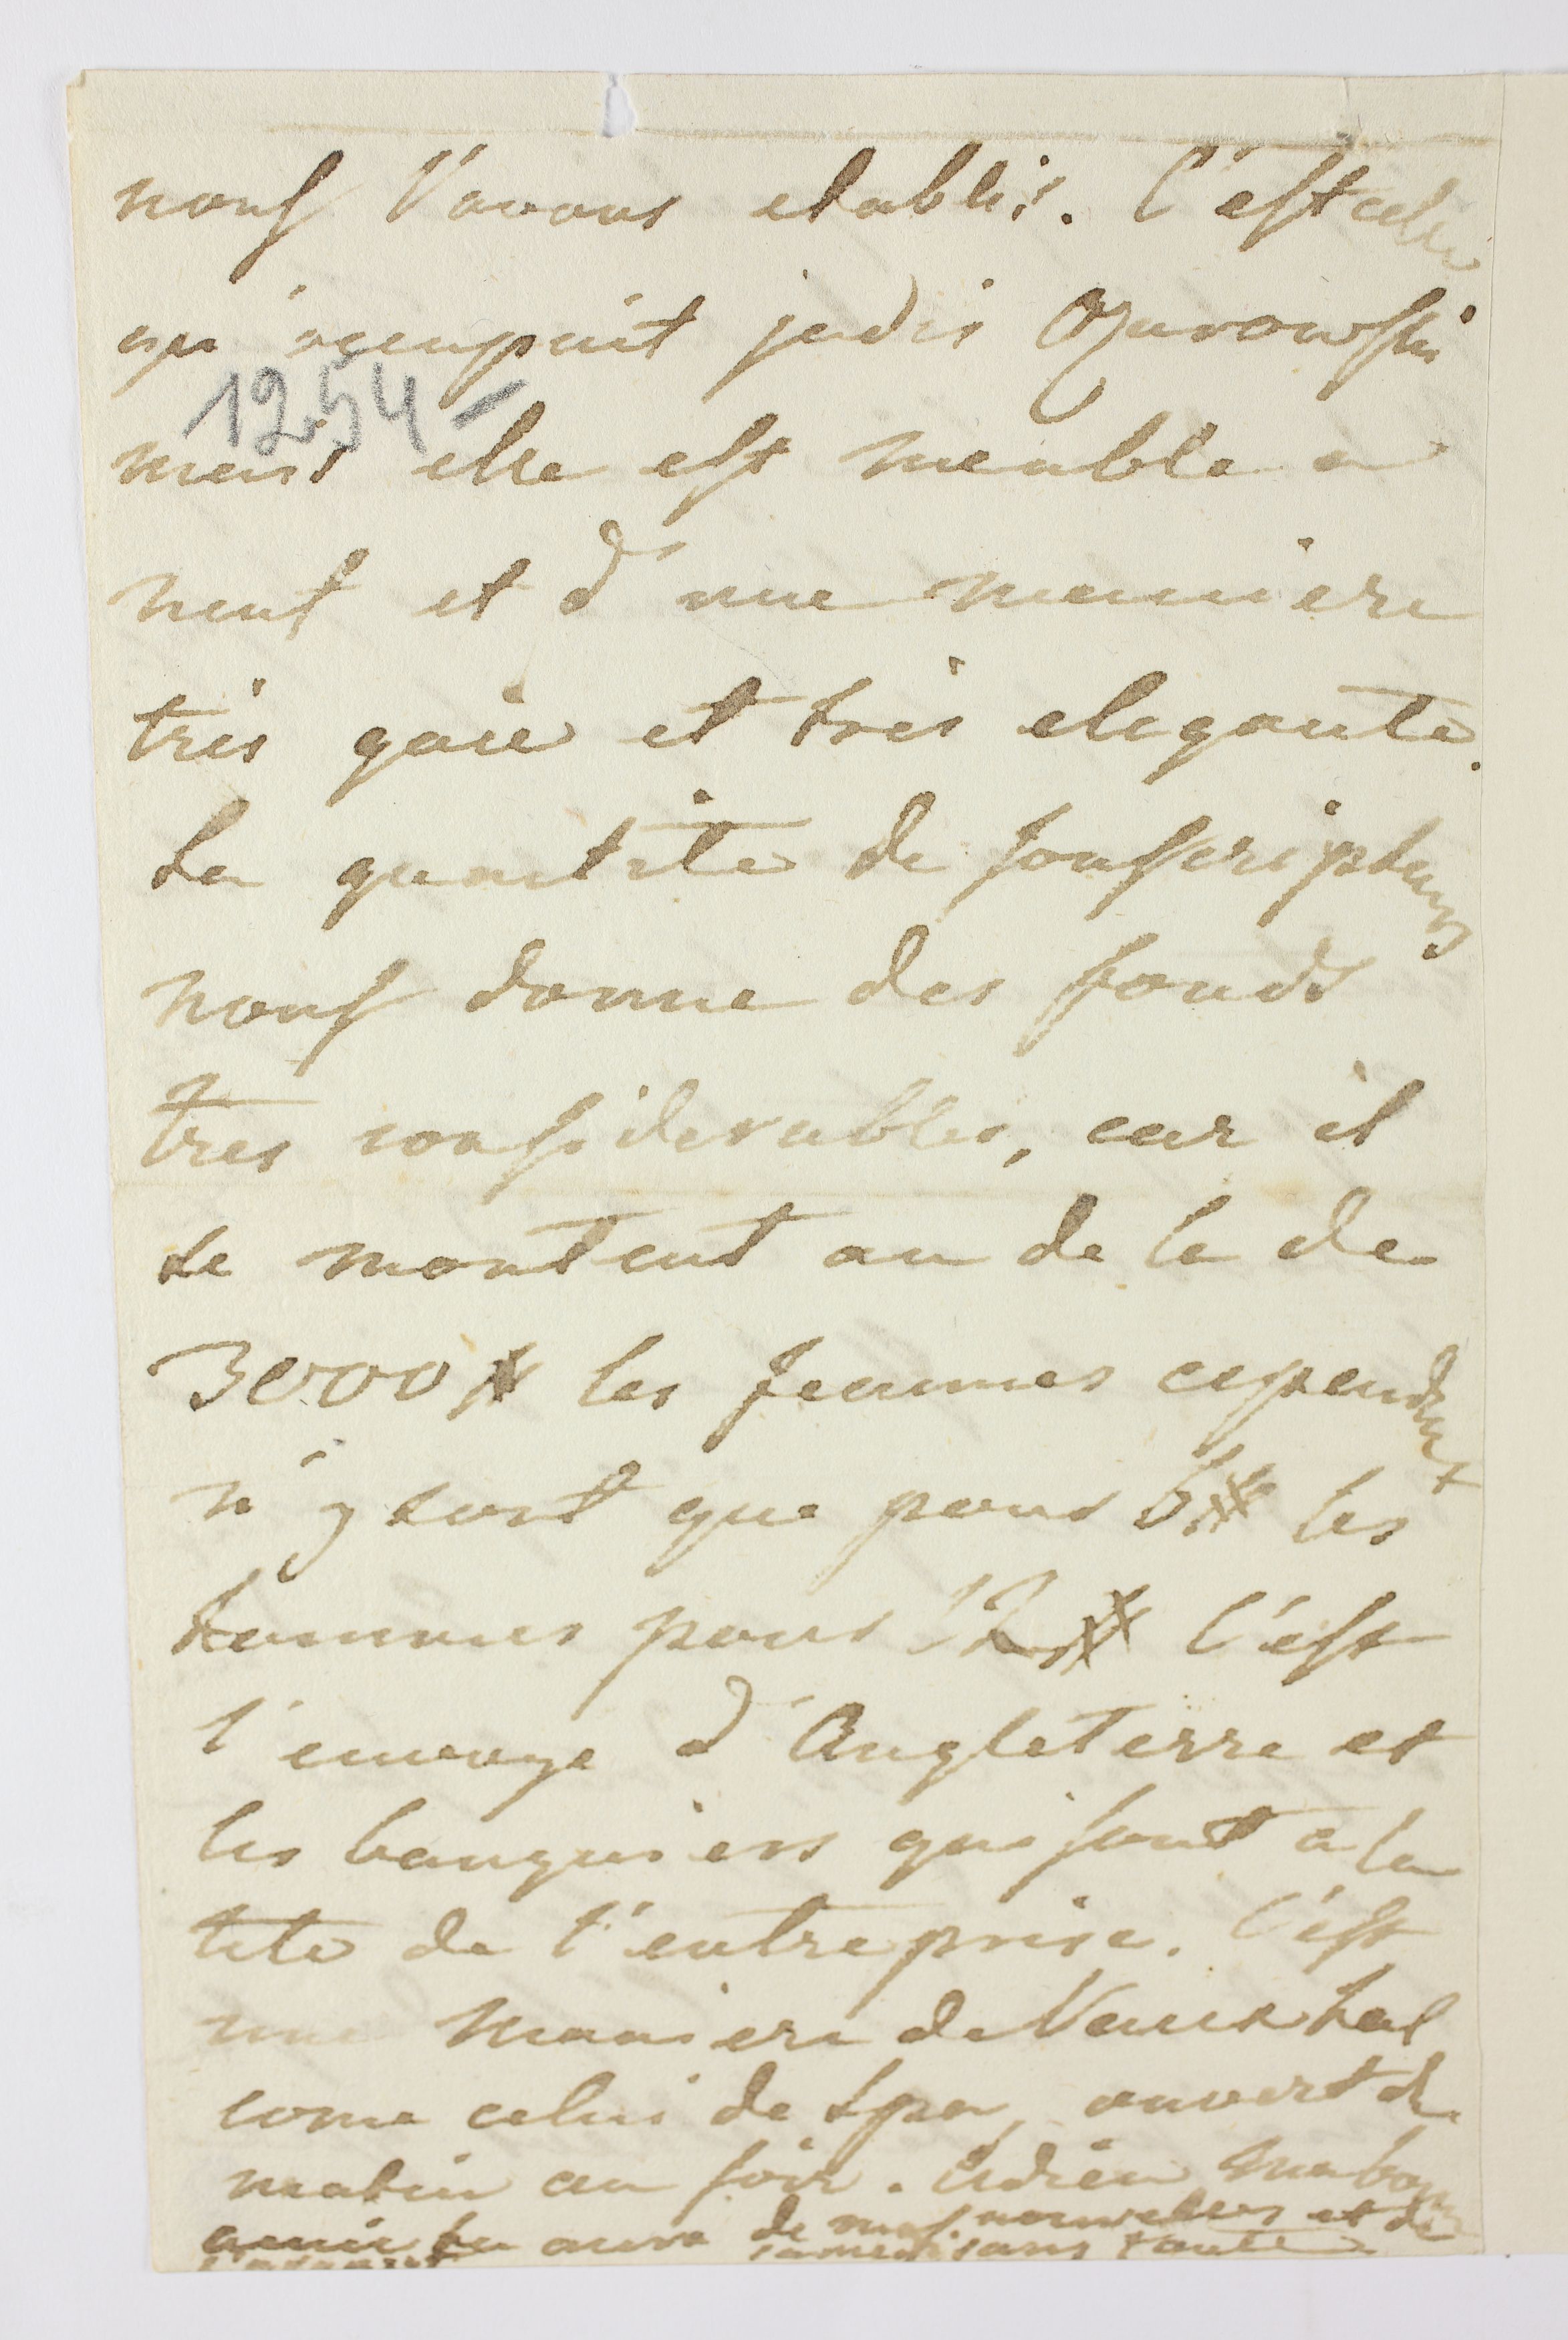 nous l'avons etablis. C'est celle
qu'occupait jadis Ozarowski
1254-
mais elle est meuble a
neuf et d'une maniere
très gaie et très elegante.
La quantité de souscripteurs
nous donne des fonds
tres considerables, car il
se montent au de la de
3000# les femmes cependant
n'y sont que pour 6# les
hommes pour 12# C'est
l'envoye d'Angleterre et
les banquiers qui sont a la
tete de l'entreprise. C'est
une maniere de Vauxhal
come celui de Spa, ouvert du
matin au soir. Adieu ma bonne
amie tu aura de mes nouvelles et de
samedi sans faute